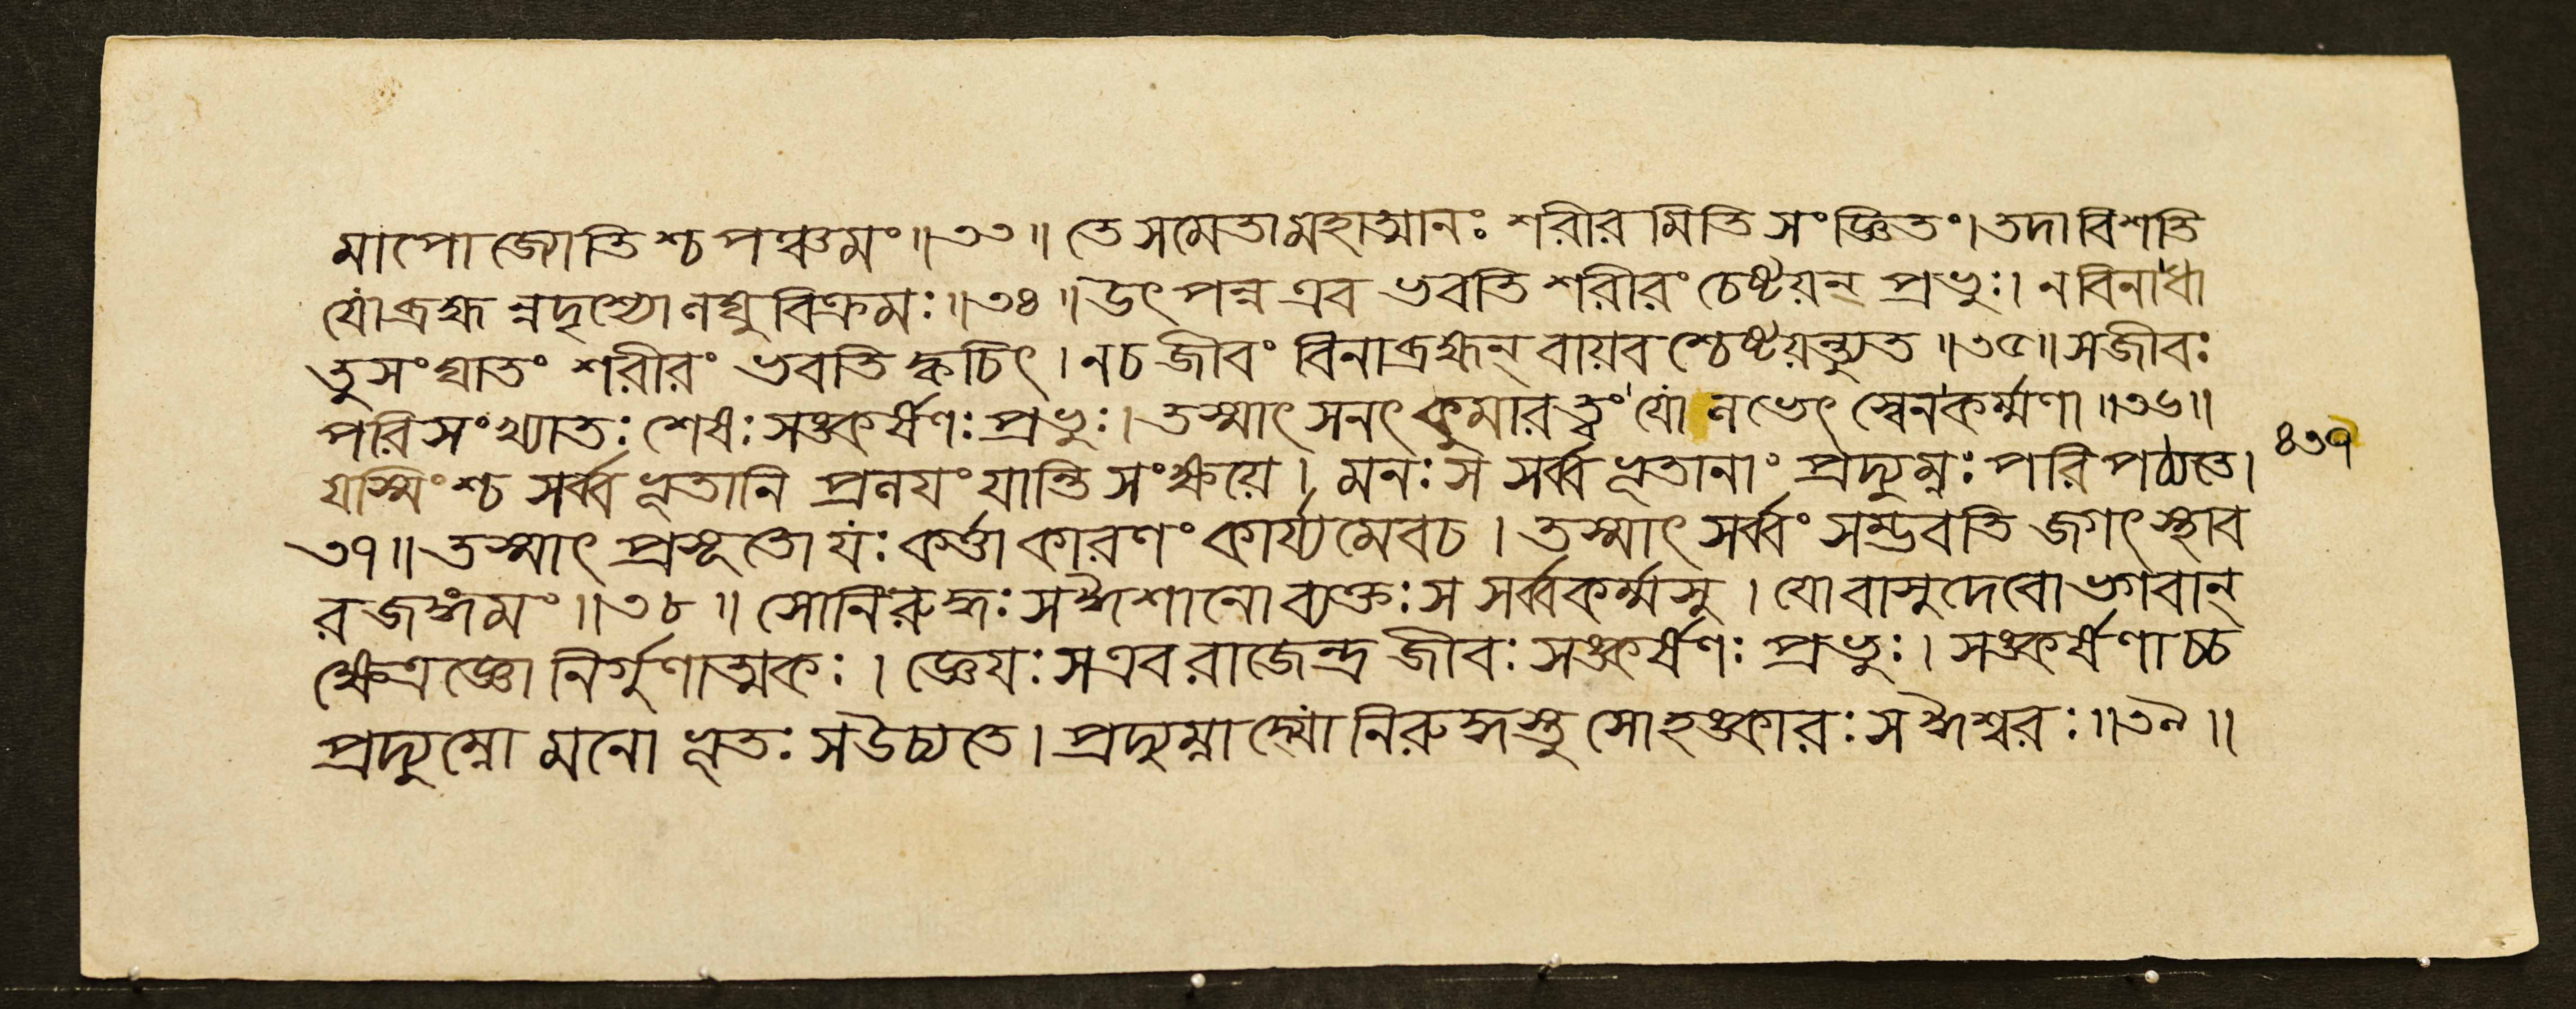 মাপো জ্যোতিশ্চ পঞ্চমং॥৩৩॥ তে সমেতামহাত্মানঃ শরীর মিতি সংজ্ঞিতং।তদাবিশতি
যোব্রহ্মন্নদৃশ্যোলঘুবিক্রমঃ॥৩৪॥উৎপন্ন এব ভবতি শরীরং চেষ্টয়ন্ প্রভুঃ। ন বিনাধা
তুসংঘাতং শরীরং ভবতি ক্বচিৎ। নচ জীবং বিনাব্রহ্মন্ বায়ব শ্চেষ্টয়ন্ত্যুত॥৩৫॥ সজীবঃ
পরিসংখ্যাতঃ শেষঃ সঙ্কর্ষণঃ প্রভুঃ। তস্মাৎ সনৎ কুমারত্বং যো লভেৎ স্বেনকর্ম্মণা॥৩৬॥
যস্মিংশ্চ সর্ব্বভূতানি প্রলয়ং যান্তি সংক্ষয়ে। মনঃ স সর্ব্বভূতানাং প্রদ্যুম্নঃ পরিপঠ্যতে। ৪৩৭
৩৭॥ তস্মাৎ প্রসূতো যঃ কর্ত্তা কারণং কার্য্যমেবচ। তস্মাৎ সর্ব্বং সম্ভবতি জগৎ স্থাব
র জঙ্গমং॥৩৮॥ সোনিরুদ্ধঃ সঈশানো ব্যক্তঃ স সর্ব্বকর্ম্মসু। যো বাসুদেবো ভগবান্
ক্ষেত্রজ্ঞো নির্গুণাত্মকঃ। জ্ঞেয়ঃ সএব রাজেন্দ্র জীবঃ সঙ্কর্ষণঃ প্রভুঃ। সঙ্কর্ষণাচ্চ
প্রদ্যুম্নো মনো ভূতঃ সউচ্যতে। প্রদ্যুম্নাদ্যোনিরুদ্ধস্তু সোহঙ্কারঃ সঈশ্বরঃ॥৩৯॥